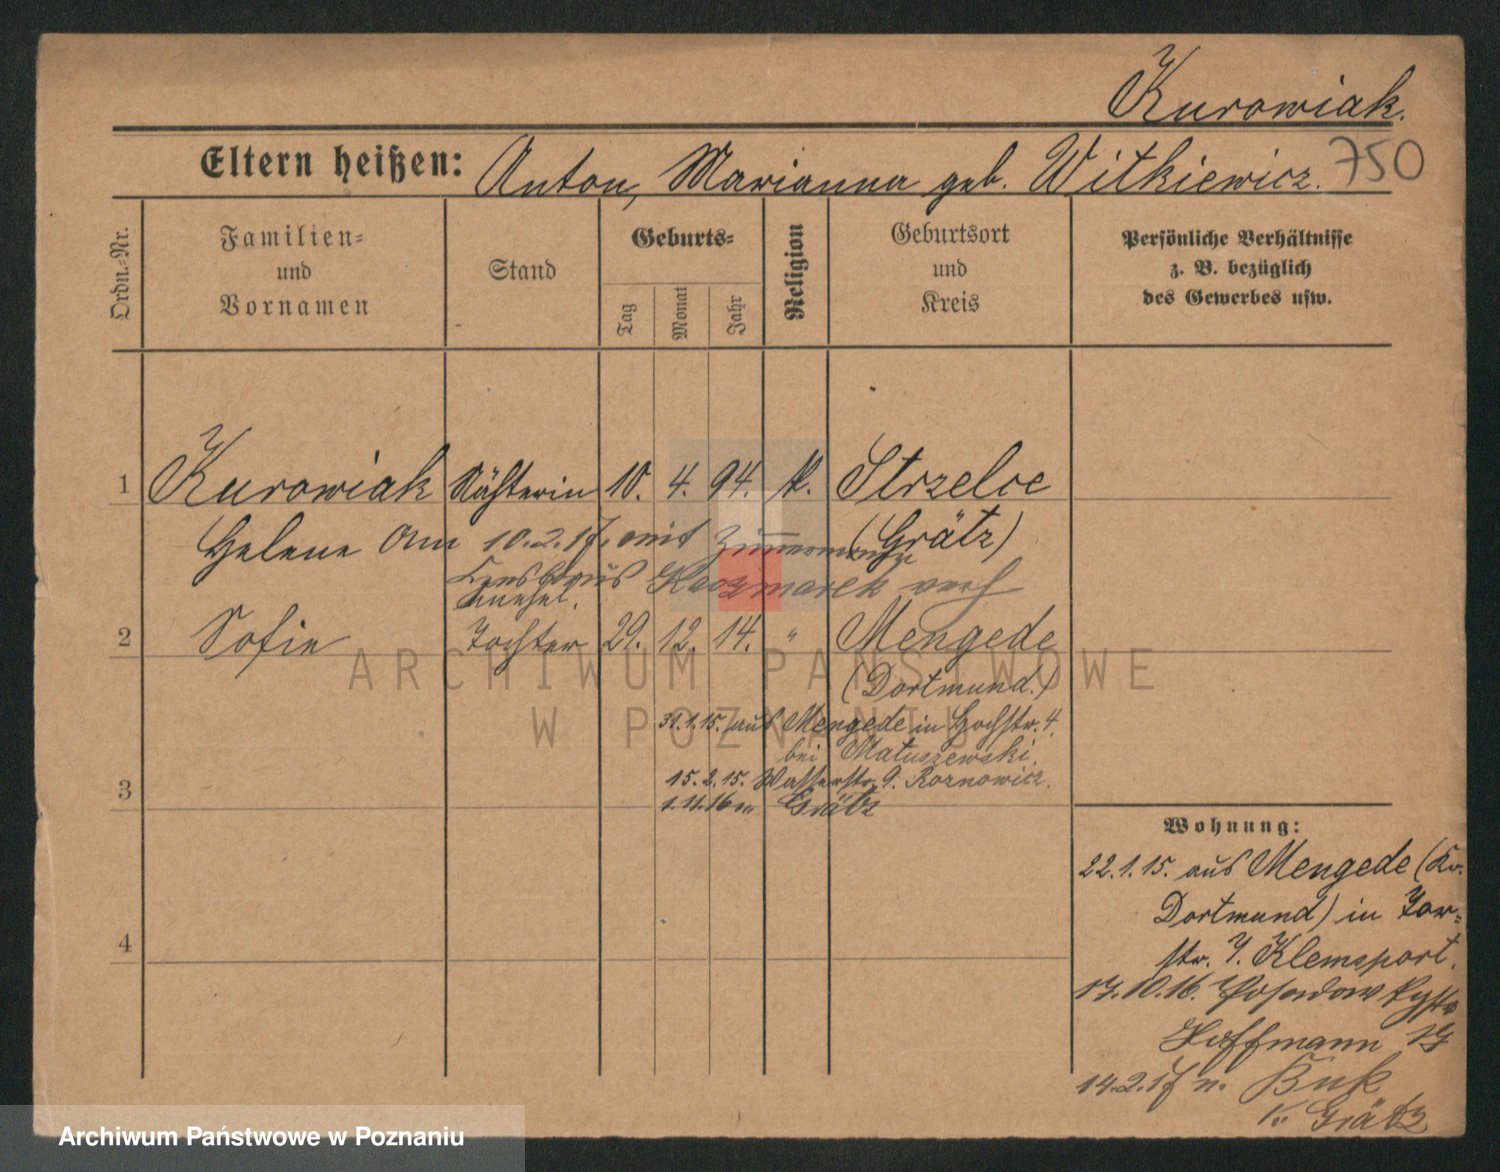 Kurowiak.
Eltern heißen: Anton, Marianna geb. Witkiewicz. 750
Ordn.-Nr.
Familien-
und
Vornamen
Stand
Geburts-
Tag
Monat
Jahr
Religion
Geburtsort
und
Kreis
Persönliche Verhältnisse
z. B. bezüglich
des Gewerbes usw.
1 Kurowiak Nähterin 10. 4. 94. k. Strzelce
Helene (Grätz)
am 10.2.17. mit Zimmermann
Kaczmarek verh
2 Sofie Tochter 29. 12. 14. " Mengede
(Dortmund.)
31.1.15. aus Mengede in Hochstr. 4.
bei Matuszewski.
15.2.15. Wasserstr. 9. Roznowicz.
1.11.16 n. Grätz
3
4
Wohnung:
22.1.15. aus Mengede (Kr.
Dortmund) in
str. 7. Klemsport.
17.10.16.
Hoffmann 17
14.2.17 n. Buk
Kr. Grätz
ARCHIWUM PAŃSTWOWE
W POZNANIU
Archiwum Państwowe w Poznaniu